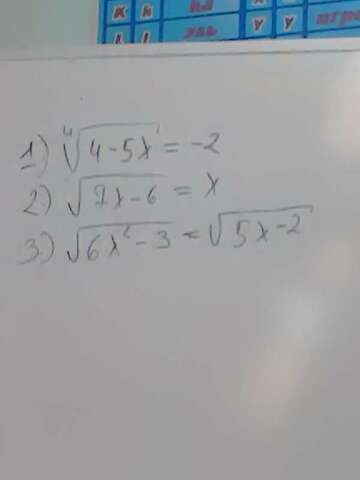 К к
У у
1) ⁴√(4-5x) = -2
2) √(7x-6) = x
3) √(6x²-3) = √(5x-2)